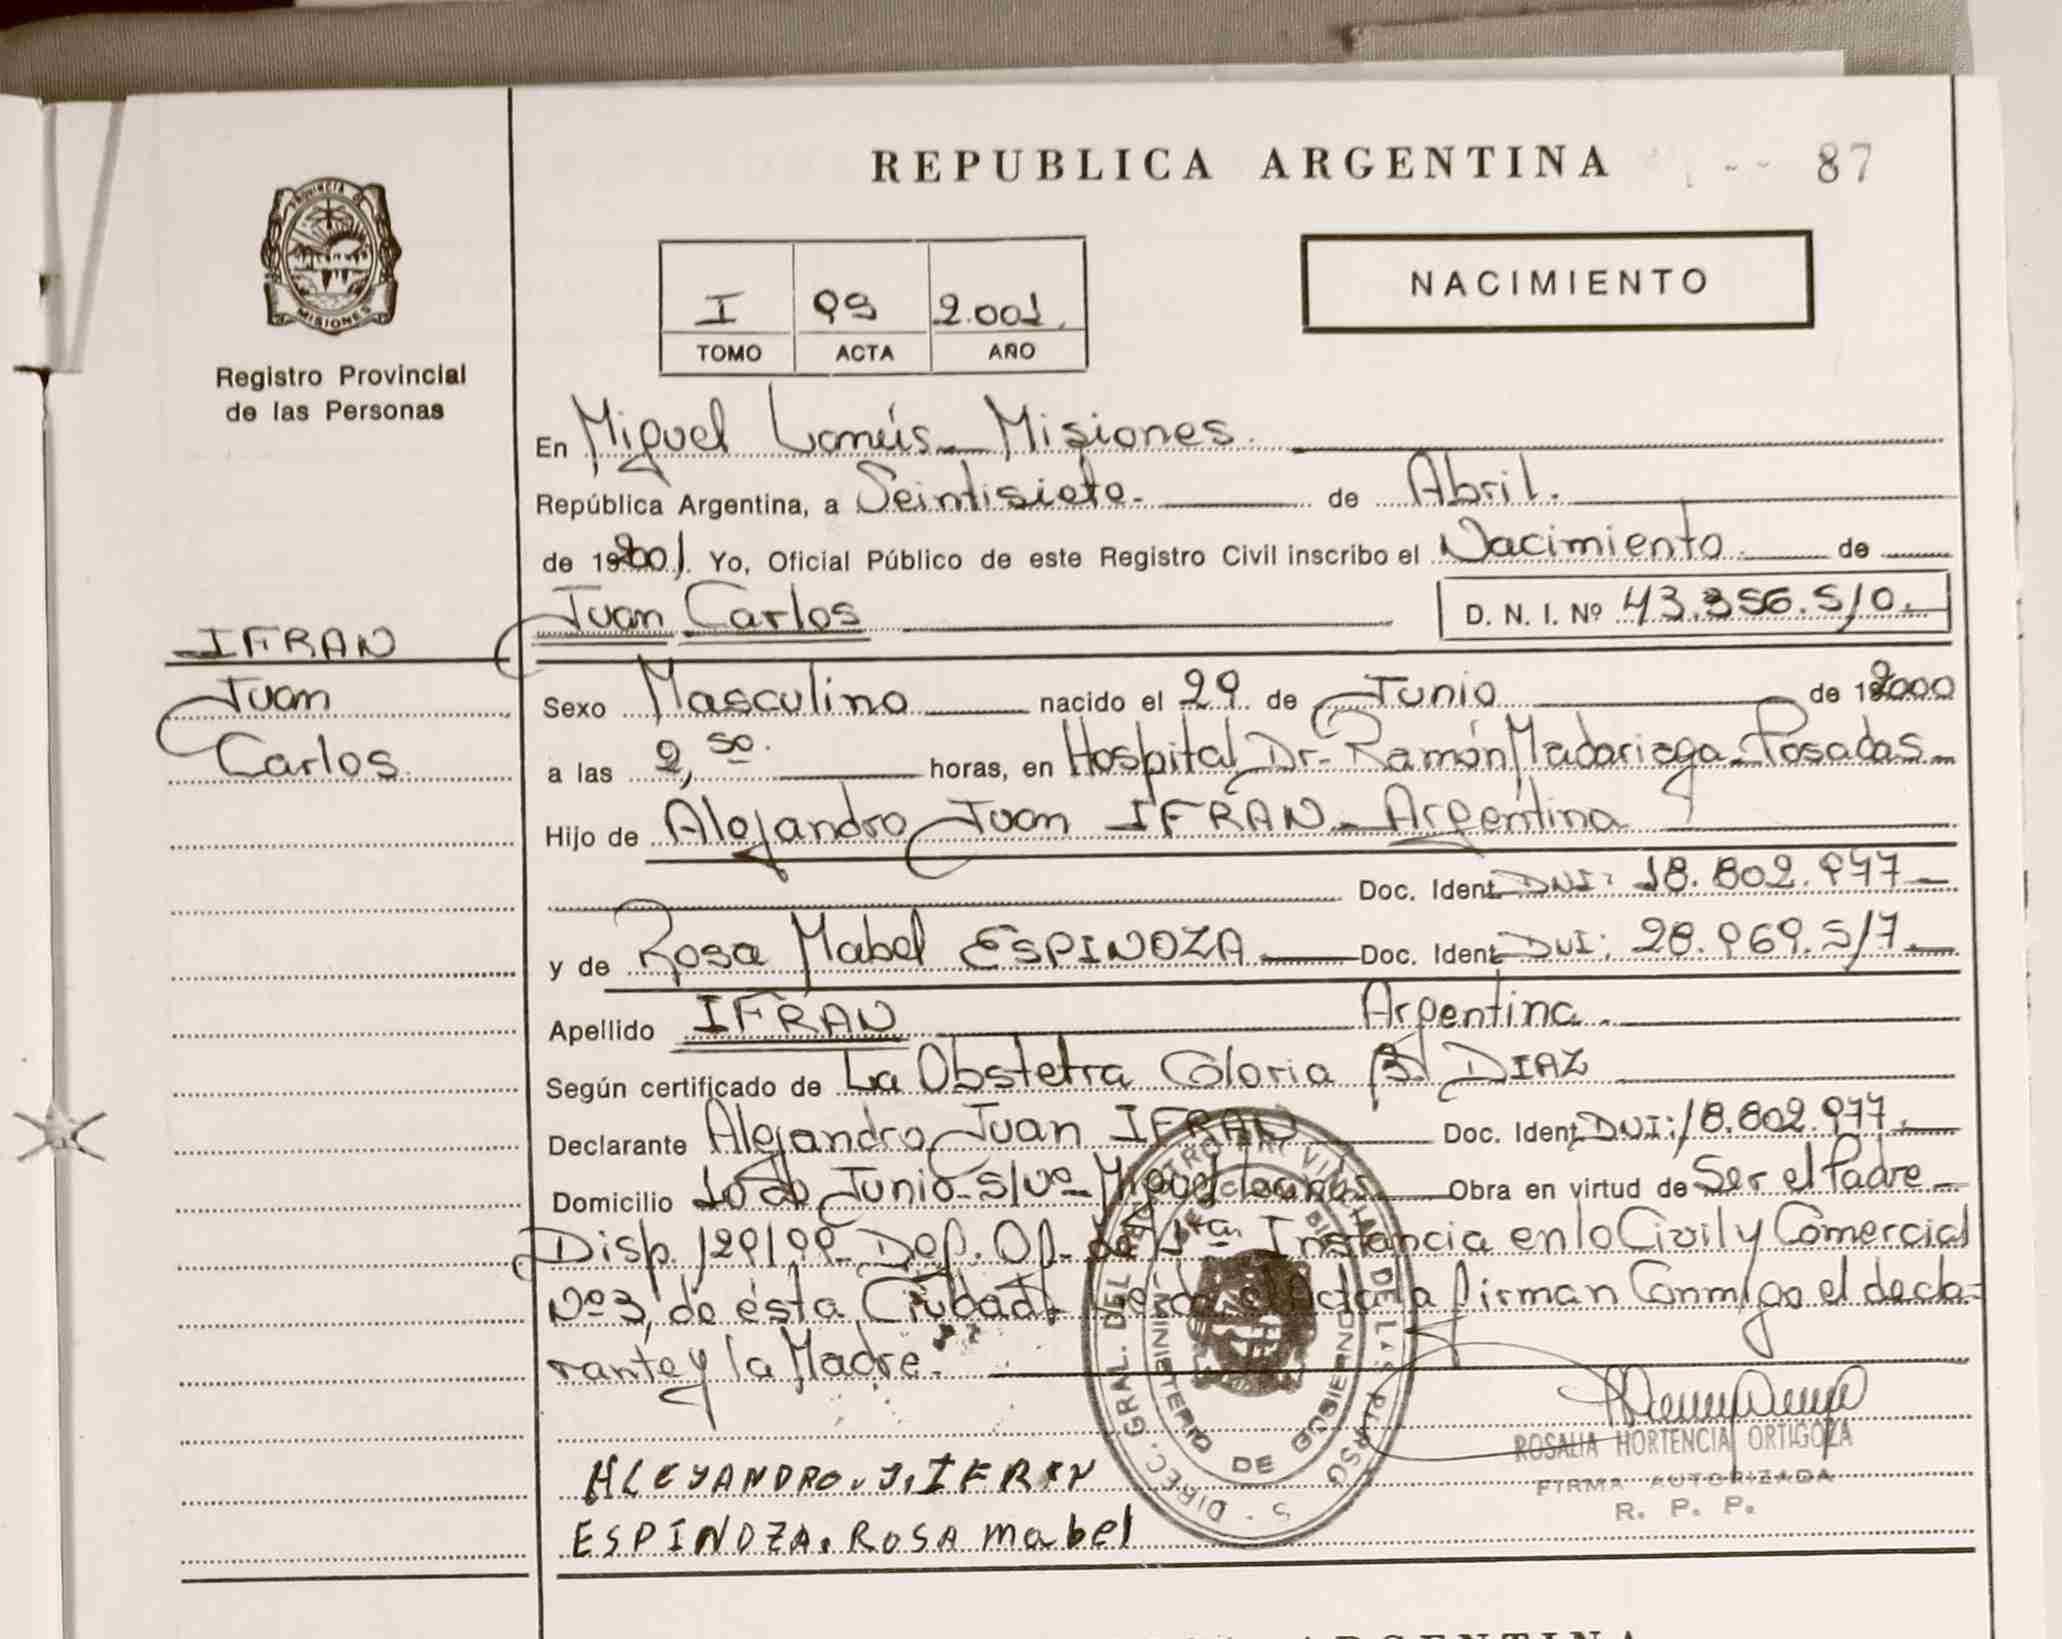 REPUBLICA ARGENTINA
87
PROVINCIA DE
MISIONES
Registro Provincial
de las Personas
NACIMIENTO
I 99 2.001.
TOMO ACTA AÑO
En Miguel Lanús - Misiones.
República Argentina, a Seintisiete. de Abril.
de 192001. Yo, Oficial Público de este Registro Civil inscribo el Nacimiento de
Juan Carlos
D. N. I. Nº 43.356.510.
IFRAN
Juan
Carlos.
Sexo Masculino nacido el 29 de Junio de 192000
a las 2,50. horas, en Hospital Dr. Ramón Madariaga - Posadas -
Hijo de Alejandro Juan IFRAN - Argentina
Doc. Ident. DNI: 18.802.977 -
y de Rosa Mabel ESPINOZA Doc. Ident. DNI: 28.969.517 -
Apellido IFRAN Argentina -
Según certificado de La Obstetra Gloria B. DIAZ
Declarante Alejandro Juan IFRAN Doc. Ident. DNI: 18.802.977.
Domicilio 10 de Junio - S/Nº - Miguel Lanús Obra en virtud de Ser el Padre -
Disp. 129/99 - Def. Of. de 1ra. Instancia en lo Civil y Comercial
Nº 3, de ésta Ciudad. Acta la firman Conmigo el decla-
rante y la Madre.
DIREC. GRAL. DEL REGISTRO PROVINCIAL DE LAS PERSO
MINISTERIO DE GOBIERNO
ROSALIA HORTENCIA ORTIGOZA
FIRMA AUTORIZADA
R. P. P.
ALEJANDRO. J. IFRAN
ESPINOZA. ROSA mabel
ARGENTINA